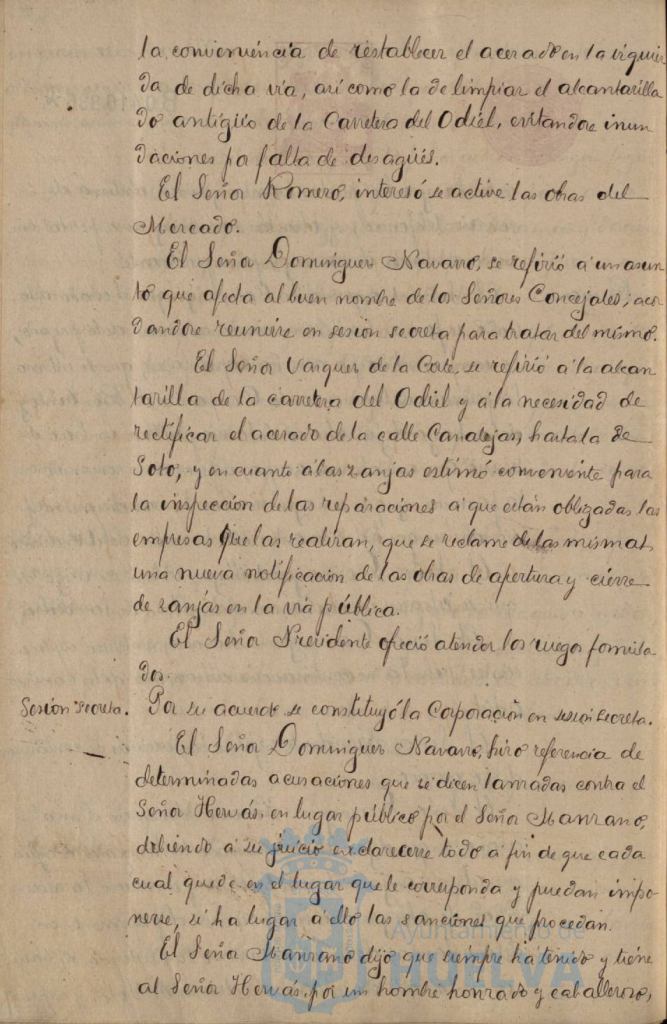 la conveniencia de restablecer el acerado en la izquier
da de dicha vía, así como la de limpiar el alcantarilla
do antiguo de la Carretera del Odiel, evitandose inun
daciones por falta de desagües.
El Señor Romero, interesó se active las obras del
Mercado.
El Señor Dominguez Navarro, se refirió á un asun
to que afecta al buen nombre de los Señores Concejales, acor
dandose reunirse en sesión secreta para tratar del mismo.
El Señor Vazquez de la Corte, se refirió á la alcan
tarilla de la carretera del Odiel y á la necesidad de
rectificar el acerado de la calle Canalejas, hasta la de
Soto, y en cuanto á las zanjas estimó conveniente para
la inspección de las reparaciones á que están obligadas las
empresas que las realizan, que se reclame de las mismas
una nueva notificación de las obras de apertura y cierre
de zanjas en la vía pública.
El Señor Presidente ofreció atender los ruegos formula
dos.
Sesión secreta. Por su acuerdo se constituyó la Corporación en sesión secreta.
El Señor Dominguez Navarro, hizo referencia de
determinadas acusaciones que se dicen lanzadas contra el
Señor Hervás, en lugar público por el Señor Manzano,
debiendo á su juicio esclarecerse todo á fin de que cada
cual quede en el lugar que le corresponda y puedan impo
nerse, si ha lugar á ello las sanciones que procedan.
El Señor Manzano dijo que siempre ha tenido y tiene
al Señor Hervás, por un hombre honrado y caballeroso,
Ayuntamiento de
HUELVA